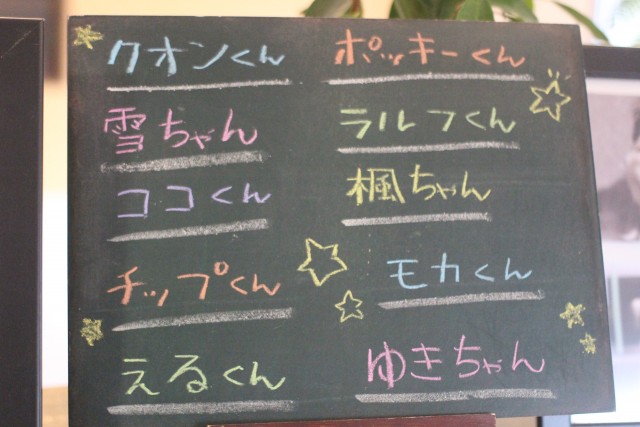 クオンくん
ポッキーくん
雪ちゃん
ラルフくん
ココくん
楓ちゃん
チップくん
モカくん
えるくん
ゆきちゃん